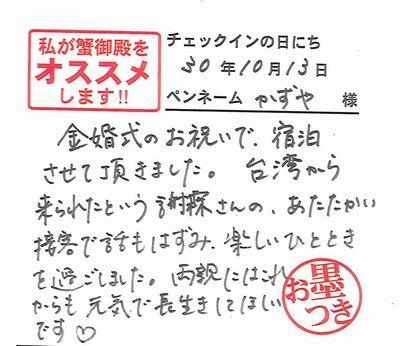 私が蟹御殿を
オススメ
します!!
チェックインの日にち
30年10月13日
ペンネーム かずや 様
金婚式のお祝いで、宿泊
させて頂きました。 台湾から
来られたという謝霖さんの、あたたかい
接客で話もはずみ、楽しいひととき
を過ごしました。両親にはこれ
からも元気で長生きしてほしい
です♡
お墨つき